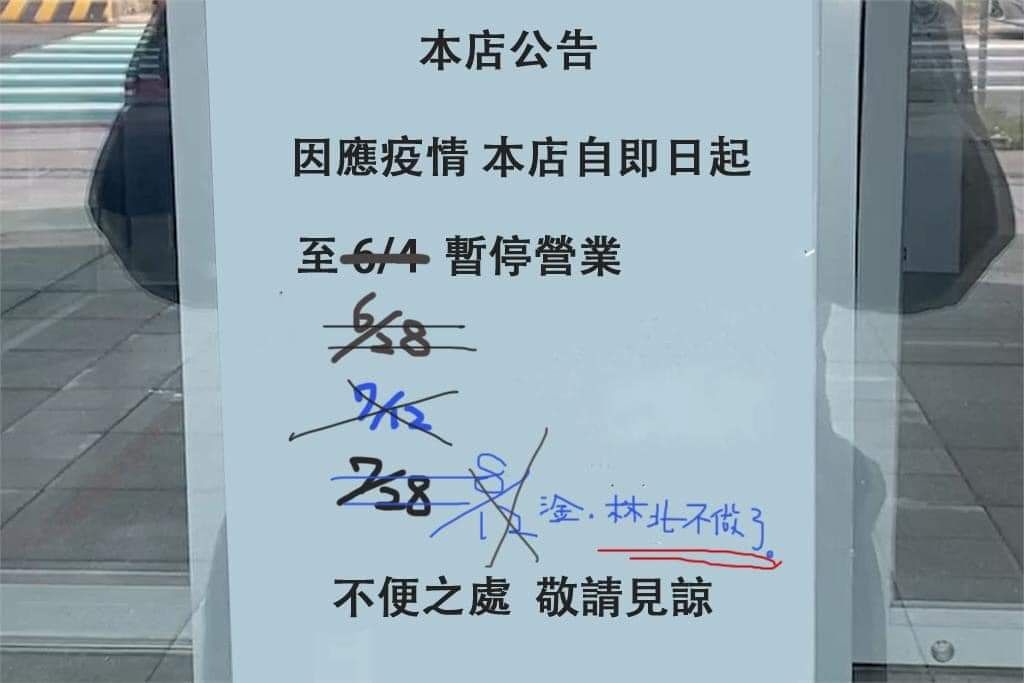 本店公告
因應疫情 本店自即日起
至 6/4 暫停營業
6/28
7/12
7/28 8/12 淦.林北不做了。
不便之處 敬請見諒